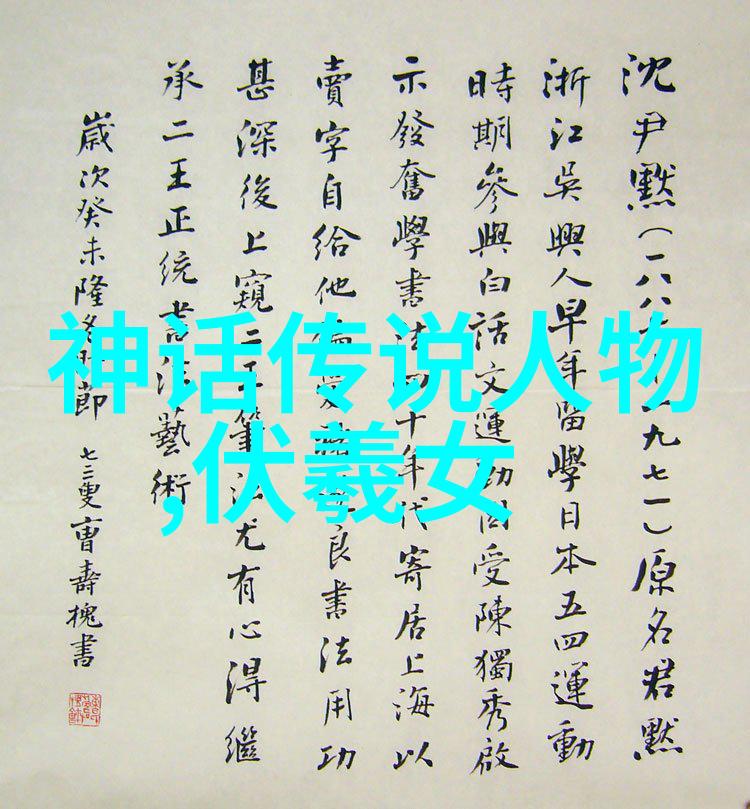 沈尹默(一八八七—一九七一)原名君默
浙江吳興人早年留學日本五四運動
時期參與白話文運動因受陳獨秀啟
示發奮學書法四十年代寄居上海以
賣字自給他 受 良書法用功
甚深後上窺二王筆法尤有心得繼
承二王正统書法藝術
歲次癸未隆冬時節
七三叟曹壽槐書
神话传说人物
,伏羲女